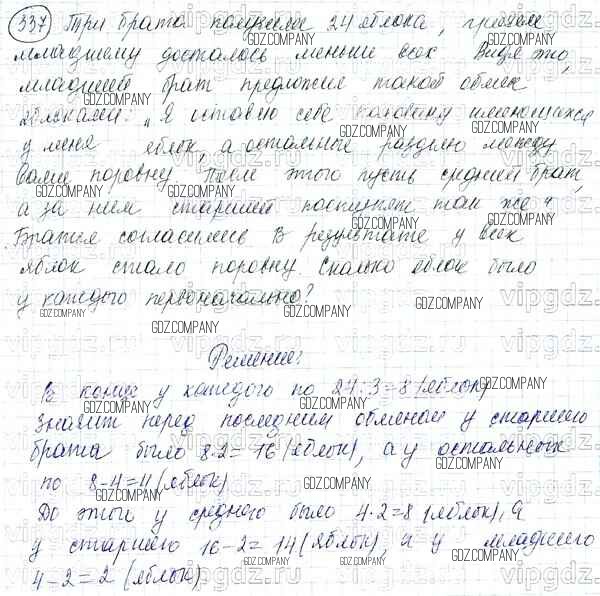 337 Три брата получили 24 яблока, причем
младшему досталось меньше всех. Видя это,
младший брат предложил такой обмен
яблоками: „Я оставлю себе половину имеющихся
у меня яблок, а остальные разделю между
вами поровну. После этого пусть средний брат,
а за ним старший поступят так же“
Братья согласились В результате у всех
яблок стало поровну. Сколько яблок было
у каждого первоначально?
Решение:
В конце у каждого по 24:3=8 (яблок)
Значит перед последним обменом у старшего
брата было 8·2=16 (яблок), а у остальных
по 8-4=4 (яблок)
До этого у среднего было 4·2=8 (яблок), а
у старшего 16-2=14 (яблок), а у младшего
4-2=2 (яблок)
GDZ.COMPANY
vipgdz.ru